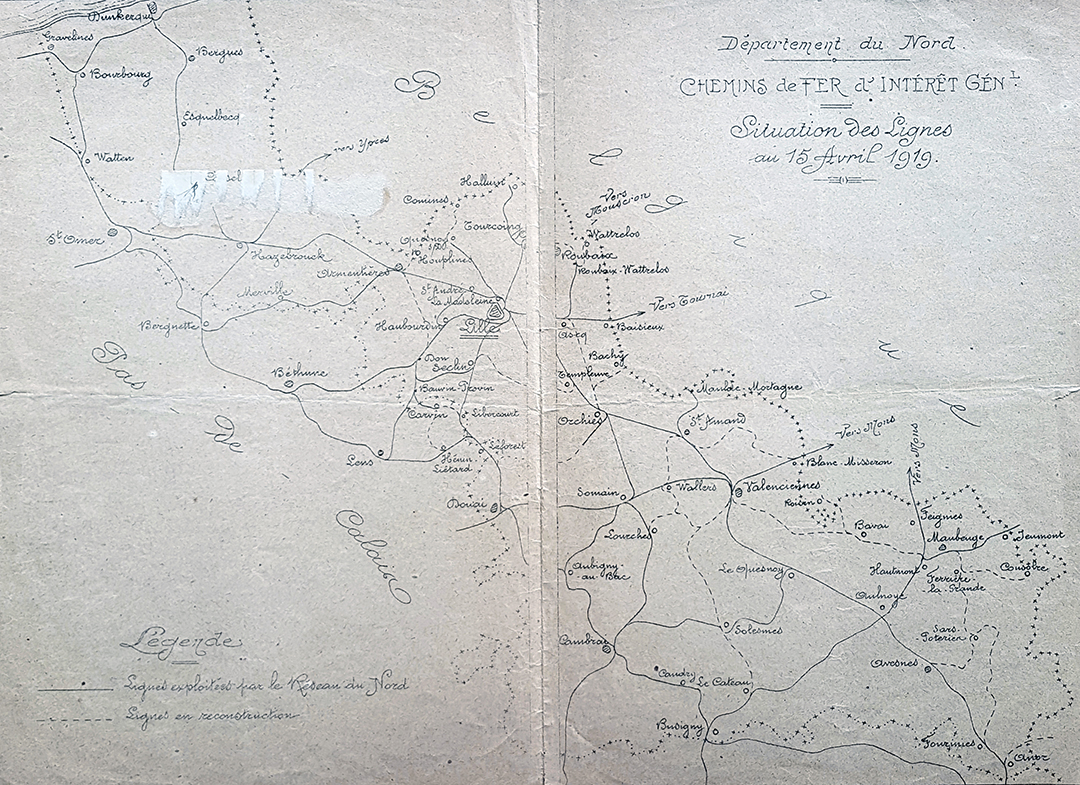 Département du Nord
CHEMINS de FER d'INTÉRÊT GÉN^L.
Situation des Lignes
au 15 Avril 1919.
Dunkerque
Gravelines
Bergues
Bourbourg
Esquelbecq
Watten
vers Ypres
St Omer
Hazebrouck
Armentières
Merville
Berguette
Béthune
Lens
Halluin
Comines
Tourcoing
Houplines
St André
La Madeleine
Haubourdin
Lille
Don
Seclin
Bauvin-Provin
Carvin
Libercourt
Hénin-
Liétard
Leforest
Douai
Vers
Mouscron
Wattrelos
Roubaix
Roubaix-Wattrelos
Vers Tournai
Ascq
Baisieux
Bachy
Templeuve
Orchies
Maulde-Mortagne
St Amand
Vers Mons
Blanc-Misseron
Vers Mons
Somain
Wallers
Valenciennes
Roisin
Lourches
Bavai
Feignies
Maubeuge
Jeumont
Aubigny-
au-Bac
Le Quesnoy
Hautmont
Ferrière
-la-Grande
Cousolre
Aulnoye
Cambrai
Solesmes
Sars-
Poteries
Avesnes
Caudry
Le Cateau
Busigny
Fourmies
Anor
Belgique
Pas
De
Calais
Légende
Lignes exploitées par le Réseau du Nord
Lignes en reconstruction